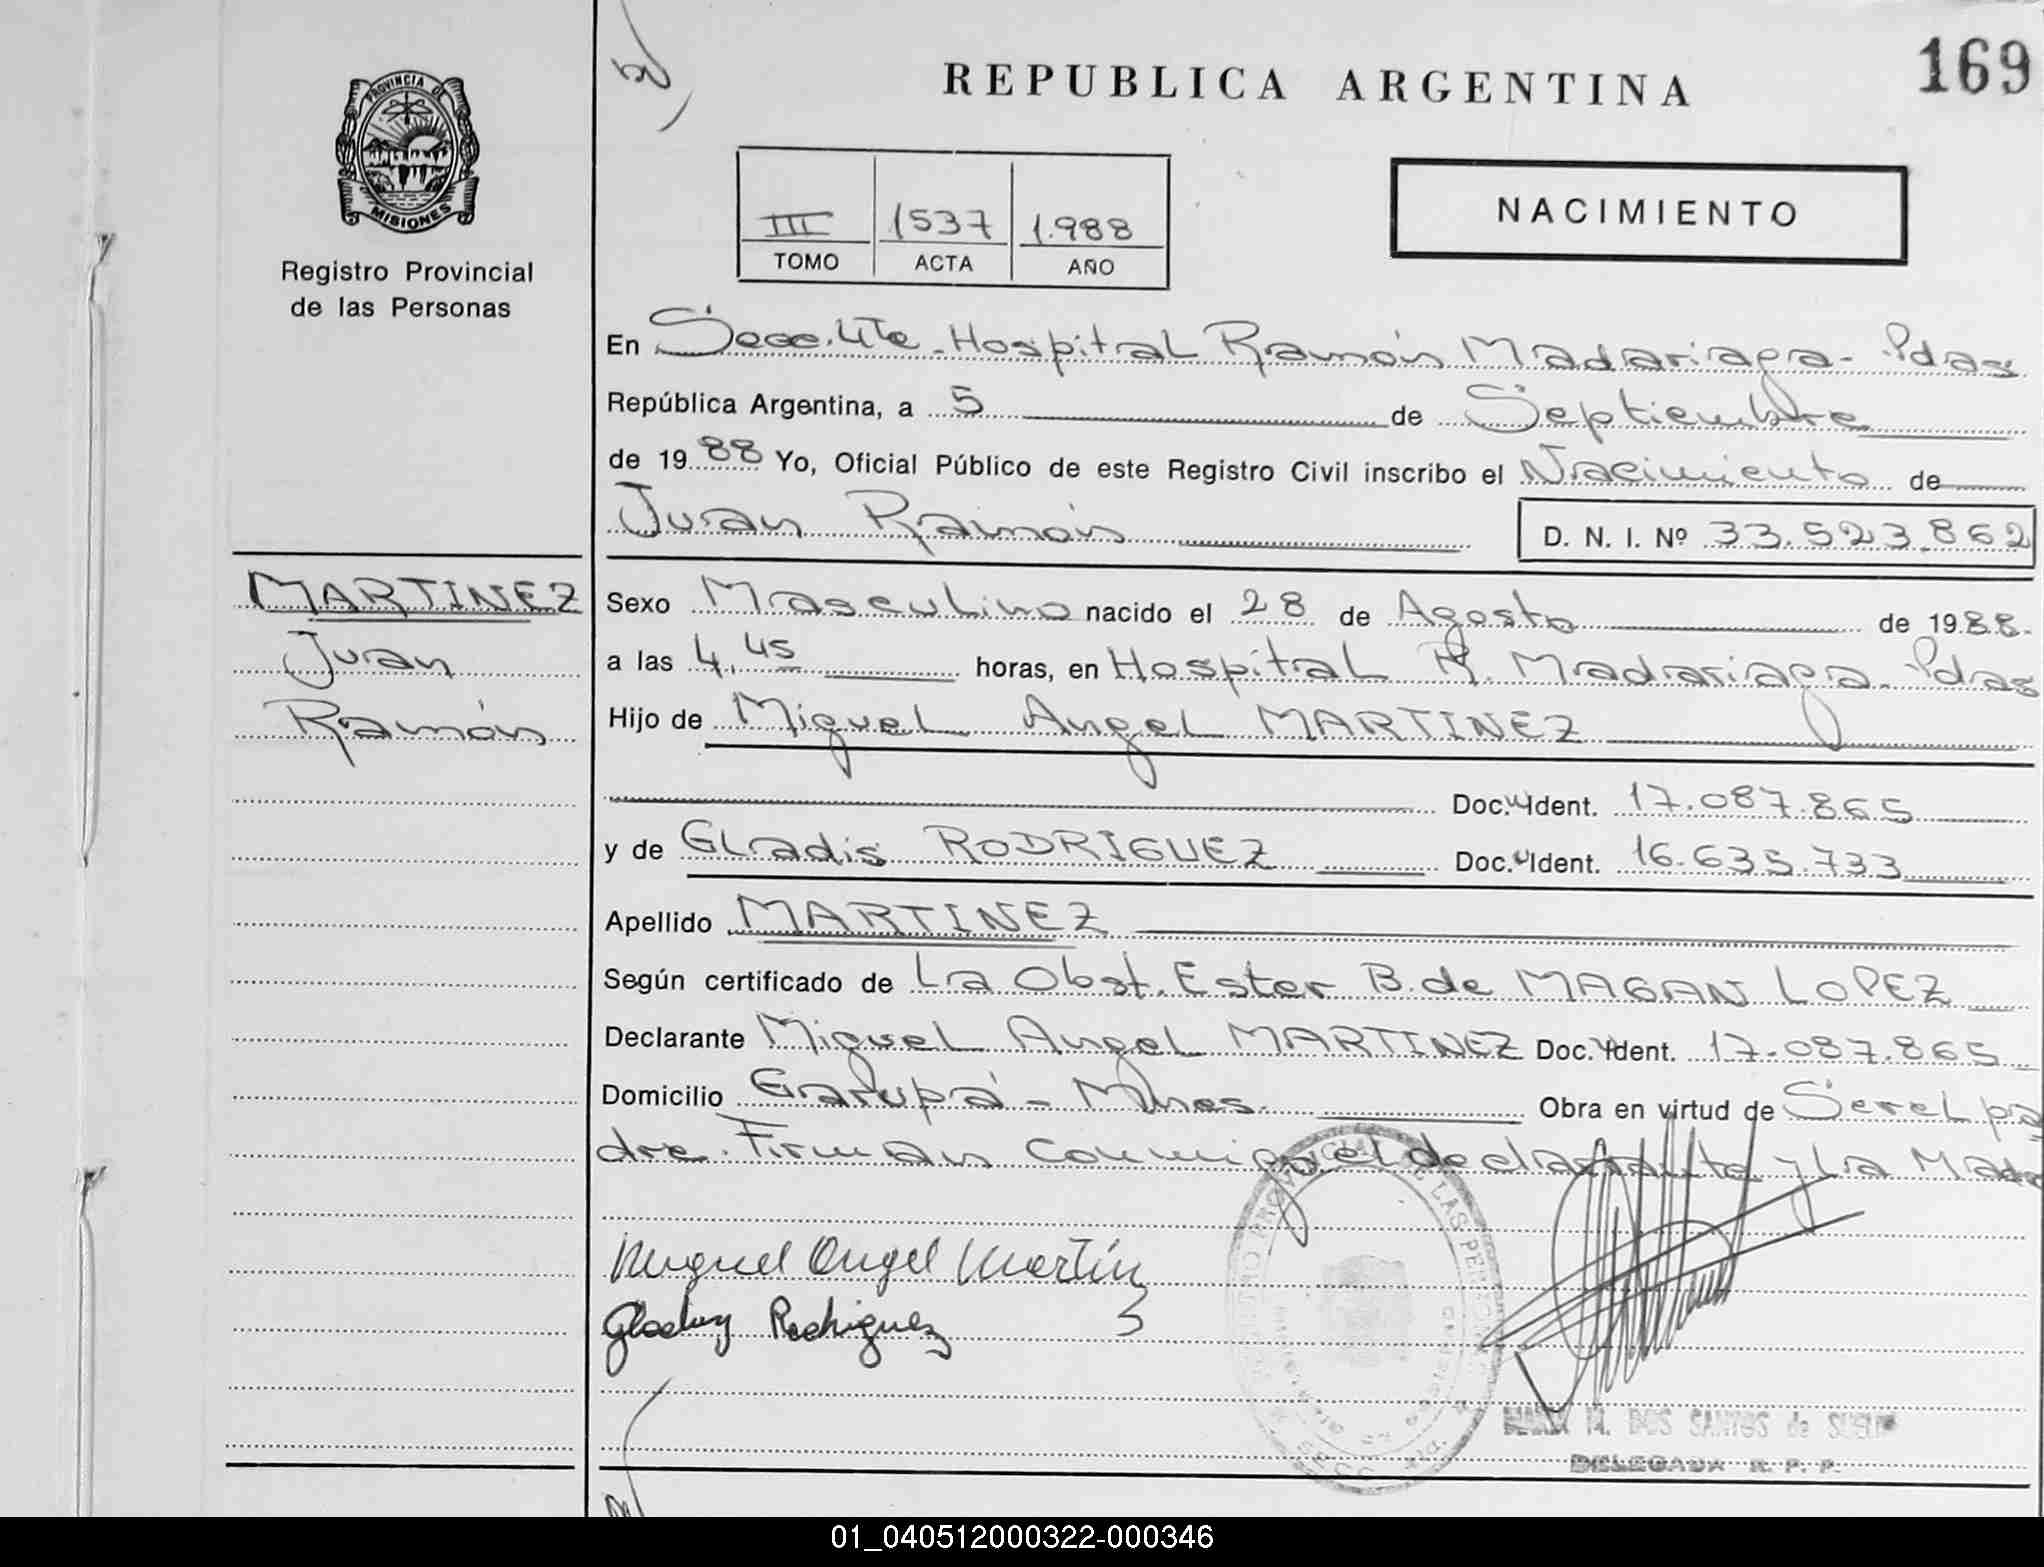 169
REPUBLICA ARGENTINA
PROVINCIA DE
MISIONES
Registro Provincial
de las Personas
III 1537 1.988
TOMO ACTA AÑO
NACIMIENTO
En Secc. 4ta - Hospital Ramón Madariaga - Pdas
República Argentina, a 5 de Septiembre
de 1988 Yo, Oficial Público de este Registro Civil inscribo el Nacimiento de
Juan Ramón D. N. I. Nº 33.523.862
MARTINEZ
Juan
Ramón
Sexo Masculino nacido el 28 de Agosto de 1988.
a las 4,45 horas, en Hospital R. Madariaga - Pdas
Hijo de Miguel Angel MARTINEZ
Doc. Ident. 17.087.865
y de GLadis RODRIGUEZ Doc. Ident. 16.635.733
Apellido MARTINEZ
Según certificado de La Obst. Ester B. de MAGAN LOPEZ
Declarante Miguel Angel MARTINEZ Doc. Ident. 17.087.865
Domicilio Garupá - Mnes. Obra en virtud de Ser el pa
dre. Firman conmigo el declarante y La Madre
Miguel Angel Martin
ez
Rodriguez
M. DOS SANTOS de
DELEGADA R. P. P.
01_040512000322-000346